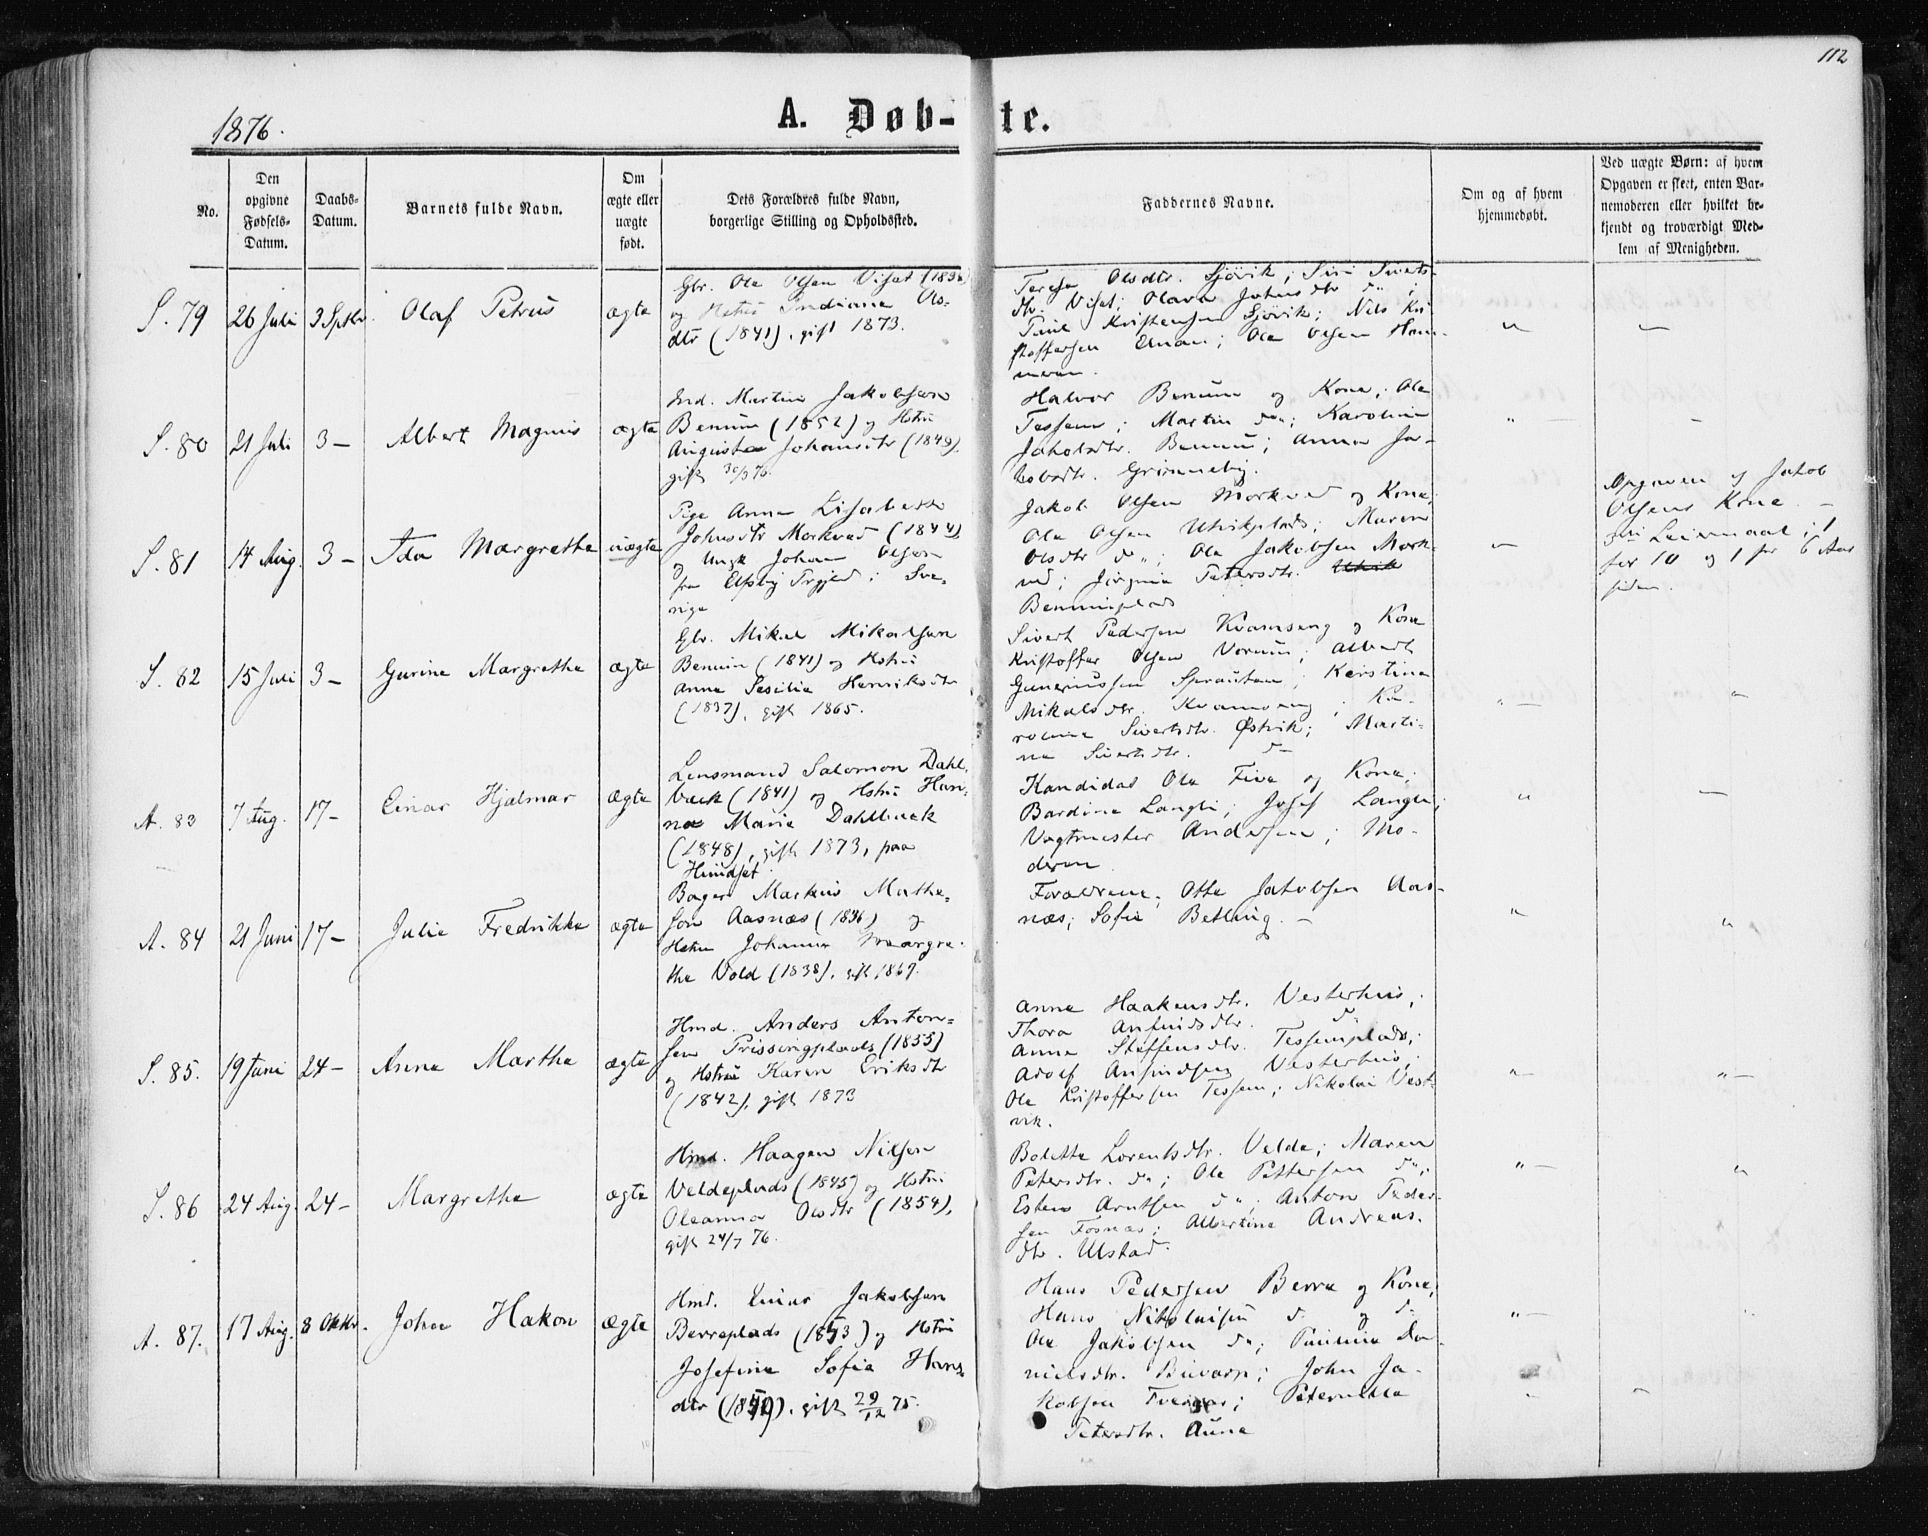 112
1876.
A. Døb-te.
No.
Den opgivne Fødsels-Datum.
Daabs-Datum.
Barnets fulde Navn.
Om ægte eller uægte født.
Dets Forældres fulde Navn, borgerlige Stilling og Opholdssted.
Faddernes Navne.
Om og af hvem hjemmedøbt.
Ved uægte Børn: af hvem Opgaven er skeet, enten Barnemoderen eller hvilket bekjendt og troværdigt Medlem af Menigheden.
S. 79
26 Juli
3 Sptbr.
Olaf Petrus
ægte
Gbr. Ole Olsen Viset
og Hstru Indiana Ols-
dtr (1841), gift 1873.
Teresa Olsdtr. Sjövik; Siri Siverts-
dtr. Viset; Olava Johnsdtr do;
Paul Kristensen Sjövik; Nils Kri-
stoffersen; Ole Olsen Ham-
meren.
S. 80
21 Juli
3 –
Albert Magnus
ægte
Ind. Martin Jakobsen
Benum (1852) og Hstru
Augusta Johansdtr (1849),
gift 30/3 76.
Halvor Benum og Kone; Ole
Tessem; Martin do; Karoline
Jakobsdtr. Benum; Anna Ja-
kobsdtr. Grönneby.
S. 81
14 Aug.
3 –
Ida Margrethe
uægte
Pige Anna Lisabeth
Johnsdtr Morkved (1844),
og Ungk Johan Olsen
fra i Sve-
rige
Jakob Olsen Morkved og Kone;
Ole Olsen Utvikplads; Maren
Olsdtr do; Ole Jakobsen Mork-
ved; Petersdtr. Utvik
Benumplads
Opgaven af Jakob
Olsens Kone –
Leiermaal;
for 10 og 1 for 6 Aar
siden.
S. 82
15 Juli
3 –
Gurine Margrethe
ægte
Gbr. Mikal Mikalsen
Benum (1841) og Hstru
Anne Sesilie Henriksdtr
(1837), gift 1865.
Sivert Pedersen Kvamseng og Kone
Kristoffer Olsen Vornum; Albert
Guneriussen Sprauten; Kerstina
Mikalsdtr. Kvamseng; Ka-
roline Sivertsdtr. Østvik; Marti-
na Sivertsdtr. do
A. 83
7 Aug.
17 –
Einar Hjalmar
ægte
Lensmand Salomon Dahl-
back (1841) og Hstru Han-
na Marie Dahlback
(1848), gift 1873, paa
Hundset.
Kandidat Ole Five og Kone;
Bardine Langli; Josef Langli;
Vagtmester Andersen; Mo-
deren
A. 84
21 Juni
17 –
Julie Fredrikke
ægte
Bager Markus Mathe-
son Aasnæs (1836) og
Hstru Johanna Margre-
the Vold (1838), gift 1869.
Forældrene; Otte Jakobsen Aas-
næs; Sofie Betting. –
S. 85.
19 Juni
24 –
Anna Martha
ægte
Hmd. Anders Anton-
sen Prissingplads (1855)
og Hstru Karen Eriksdtr
(1842), gift 1873
Anne Haakensdtr. Vesterhus;
Thora Anfindsdtr. do
Anna Steffensdtr. Tessemplads;
Adolf Anfindsen Vesterhus;
Ole Kristoffersen Tessem; Nikolai Vest-
vik.
S. 86
24 Aug.
24 –
Margrethe
ægte
Hmd. Haagen Nilsen
Veldeplads (1845) og Hstru
Oleanna Olsdtr (1854),
gift 24/7 76.
Bolette Lorentsdtr. Velde; Maren
Petersdtr. do; Ole Pettersen do;
Esten Arntsen do; Anton Peder-
sen Fosnæs; Albertine Andreas-
dtr. Ulstad.
A. 87.
17 Aug.
8 Oktbr.
John Hakon
ægte
Hmd. Einar Jakobsen
Berreplads (1853) og Hstru
Josefine Sofia Hans-
dtr, gift 29/12 75.
Hans Pedersen Berre og Kone;
Hans Nikolaisen do og do
Ole Jakobsen do; Da-
nielsdtr.; John Ja-
kobsen; Peternella
Petersdtr. Aune